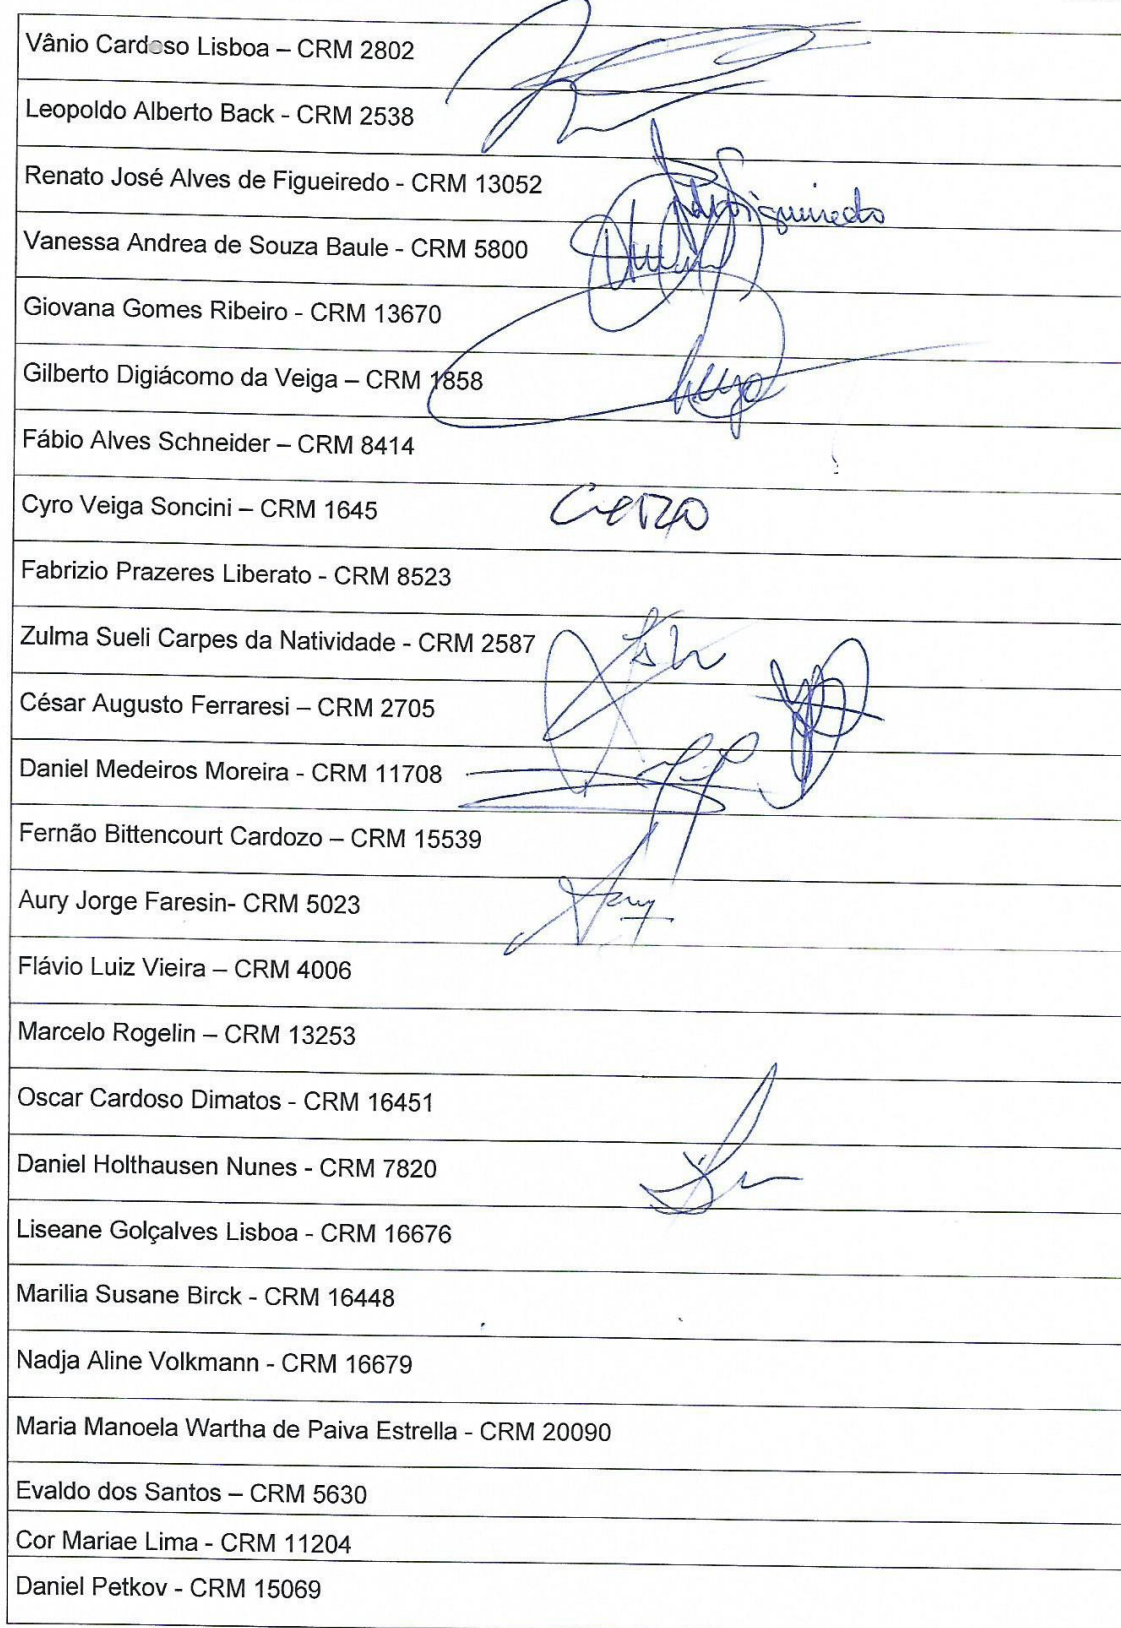 Vânio Cardoso Lisboa – CRM 2802
Leopoldo Alberto Back - CRM 2538
Renato José Alves de Figueiredo - CRM 13052
Figueiredo
Vanessa Andrea de Souza Baule - CRM 5800
Giovana Gomes Ribeiro - CRM 13670
Gilberto Digiácomo da Veiga – CRM 1858
Fábio Alves Schneider – CRM 8414
Cyro Veiga Soncini – CRM 1645
Fabrizio Prazeres Liberato - CRM 8523
Zulma Sueli Carpes da Natividade - CRM 2587
César Augusto Ferraresi – CRM 2705
Daniel Medeiros Moreira - CRM 11708
Fernão Bittencourt Cardozo – CRM 15539
Aury Jorge Faresin- CRM 5023
Flávio Luiz Vieira – CRM 4006
Marcelo Rogelin – CRM 13253
Oscar Cardoso Dimatos - CRM 16451
Daniel Holthausen Nunes - CRM 7820
Liseane Golçalves Lisboa - CRM 16676
Marilia Susane Birck - CRM 16448
Nadja Aline Volkmann - CRM 16679
Maria Manoela Wartha de Paiva Estrella - CRM 20090
Evaldo dos Santos – CRM 5630
Cor Mariae Lima - CRM 11204
Daniel Petkov - CRM 15069